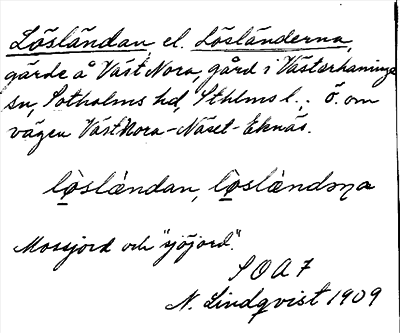 Lösländan, el. Lösländerna,
gärde å Väst Nora, gård i Västerhaninge
sn, Sotholms hd, Sthlms l.; ö. om
vägen Väst Nora–Näset–Eknäs.
lo̲slàndan, lo̲slàndəna
Mossjord och "sjöjord".
SOA 7
N. Lindqvist 1909